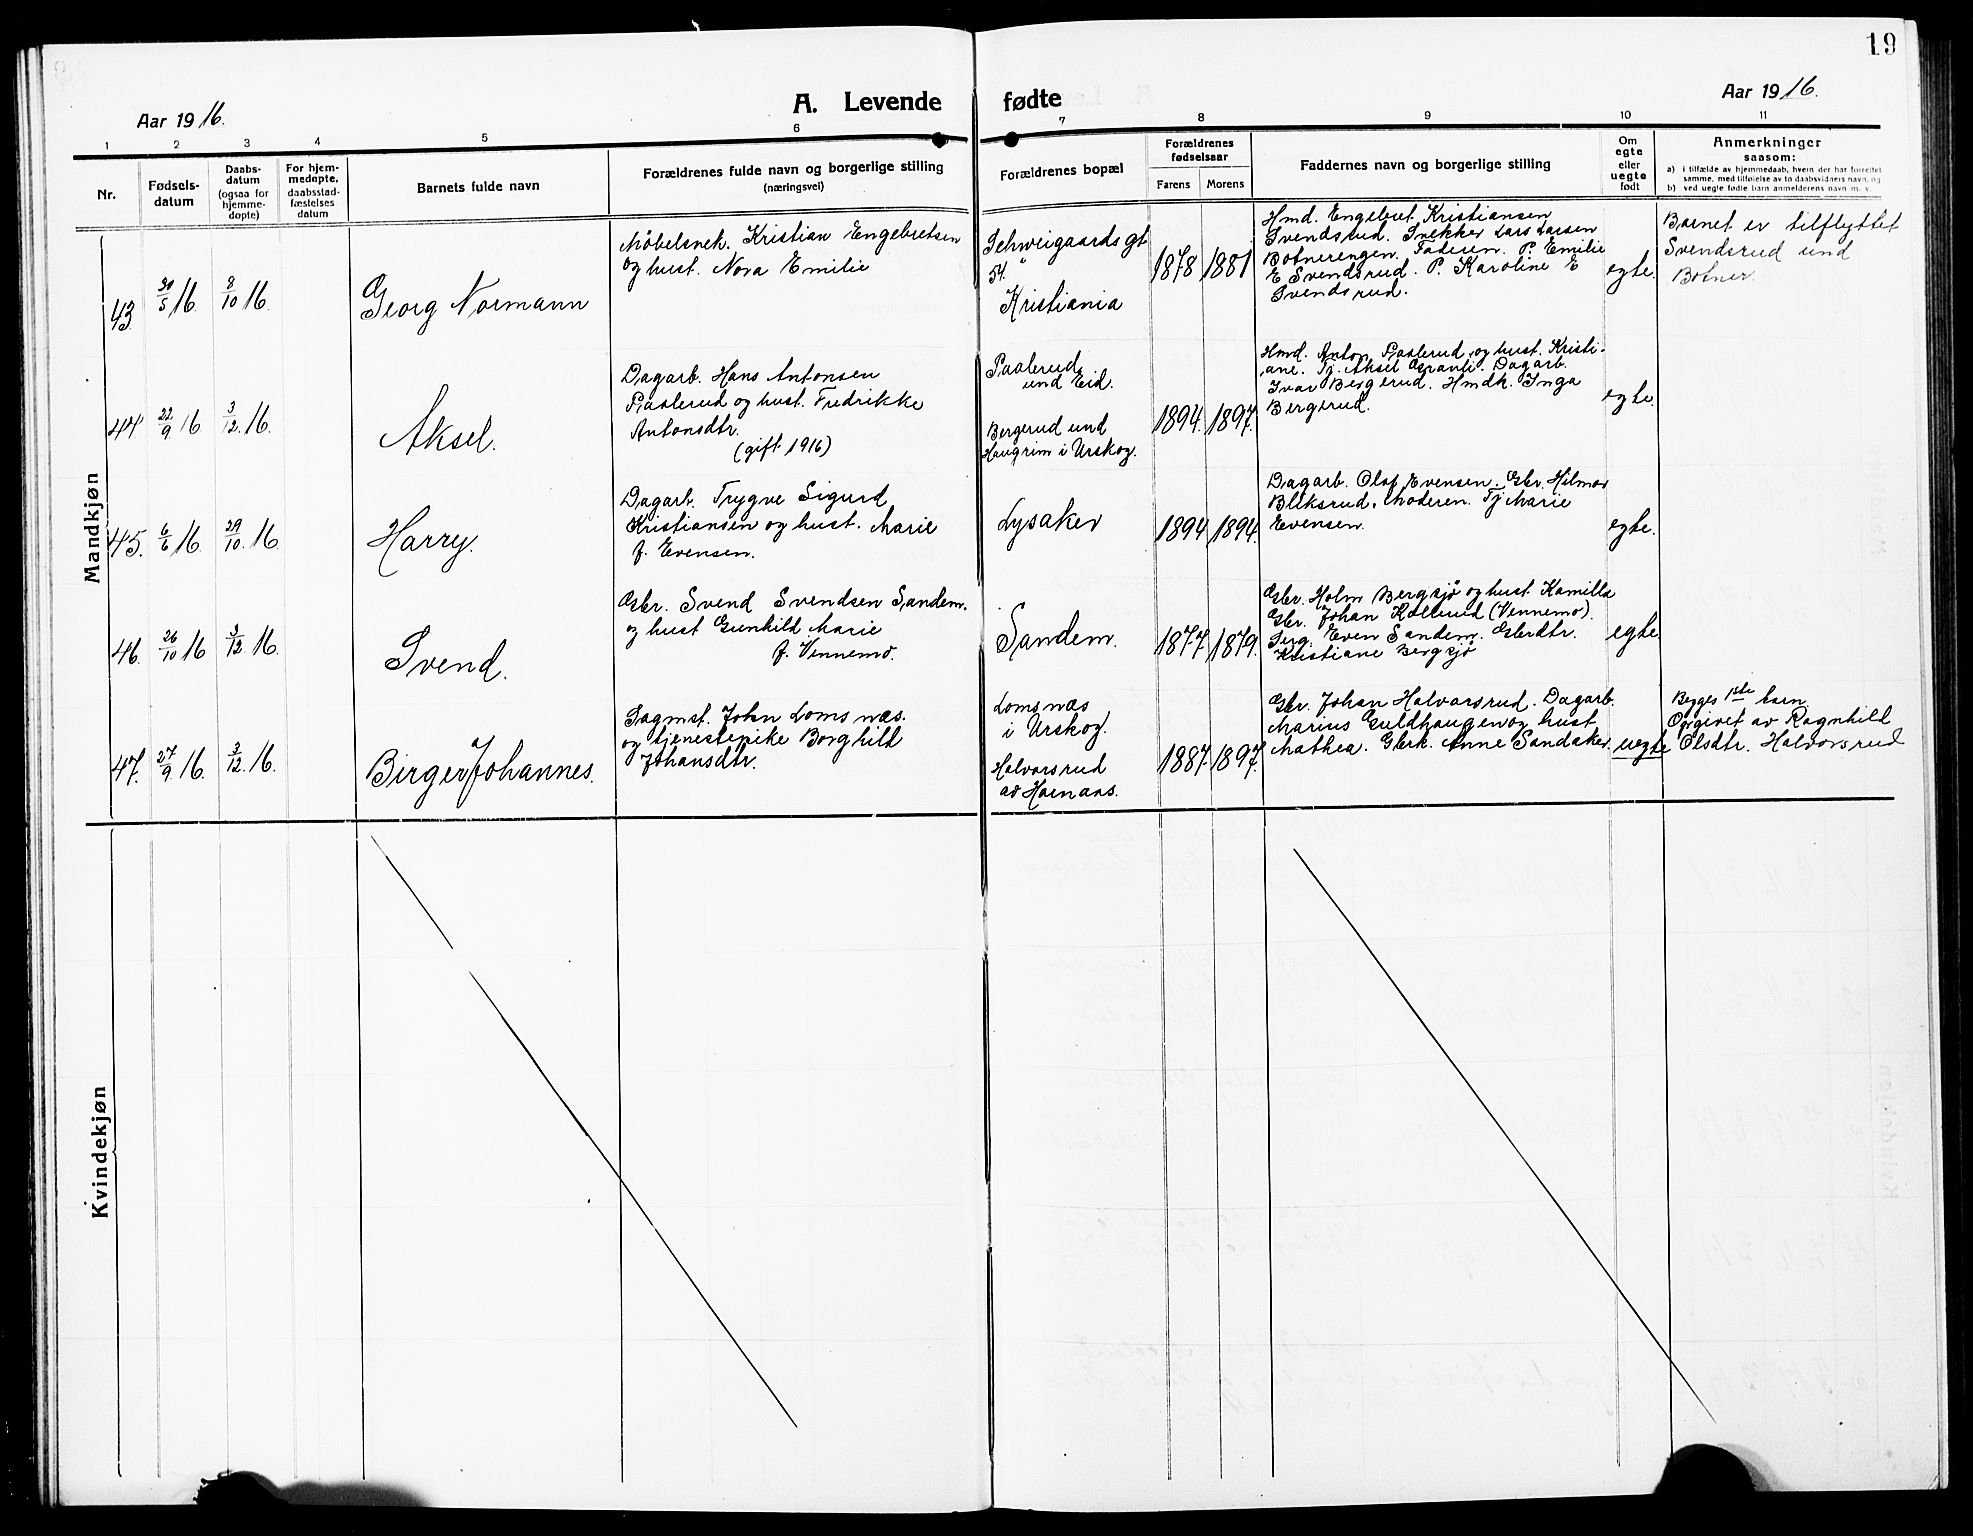 19
Aar 1916.
A. Levende fødte
Aar 1916.
1 2 3 4 5 6 7 8 9 10 11
Nr.
Fødsels-
datum
Daabs-
datum
(ogsaa for
hjemme-
døpte)
For hjem-
medøpte.
daabsstad-
fæstelses
datum
Barnets fulde navn
Forældrenes fulde navn og borgerlige stilling
(næringsvei)
Forældrenes bopæl
Forældrenes
fødselsaar
Farens Morens
Faddernes navn og borgerlige stilling
Om
egte
eller
uegte
født
Anmerkninger
saasom:
a) i tilfælde av hjemmedaab, hvem der har forrettet
samme, med tilføielse av to daabsvidners navn, og
b) ved uegte fødte barn anmelderens navn m. v.
Mandkjøn
43
30/5 16
8/10 16.
Georg Normann
Møbelsnek. Kristian Engebretsen
og hust. Nora Emilie
Schweigaards gt
54.
Kristiania
1878 1881
Hmd. Engebret Kristiansen
Svendsrud. Snekker Lars Larsen
Botnerengen. Faderen. P. Emilie
E Svendsrud. P. Karoline E
Svendsrud.
egte.
Barnet er tilflyttet
Svendsrud und
Botner.
44
22/9 16
3/12 16.
Aksel.
Dagarb. Hans Antonsen
Paalerud og hust. Fredrikke
Antonsdtr.
(gift 1916)
Paalerud
und Eid.
Bergerud und
Haugrim i Urskog.
1894. 1897.
Hmd. Anton Paalerud og hust. Kristi-
ane. Tj. Aksel Graali. Dagarb.
Ivar Bergerud. Hmdk. Inga
Bergerud.
egte.
45.
6/6 16.
29/10 16.
Harry.
Dagarb. Trygve Sigurd
Kristiansen og hust. Marie
f. Evensen.
Lysaker
1894 1894.
Dagarb. Olaf Evensen. Gbr. Hilmar
Bliksrud. Moderen. Tj Marie
Evensen.
egte.
46.
26/10 16
3/12 16.
Svend.
Gbr. Svend Svendsen Sandem.
og hust Gunhild Marie
f. Vennemo.
Sandem.
1877 1879.
Gbr. Holm Bergsjø og hust Kamilla
Gbr. Johan Kollerud (Vennemo).
Serg. Even Sandem. Gbrdtr.
Kristiane Bergsjø
egte
47.
27/9 16.
3/12 16.
Birger Johannes.
Sagmst. John Lomsnæs.
og tjenestepike Borghild
Johansdtr.
Lomsnæs
i Urskog.
Halvorsrud
av Hornaas.
1887. 1897.
Gbr. Johan Halvorsrud. Dagarb.
Marius Guldhaugen og hust
Mathea. Gbrk. Anne Sandaker.
uegte
Begges 1ste barn.
Opgivet av Ragnhild
Olsdtr. Halvorsrud
Kvindekjøn